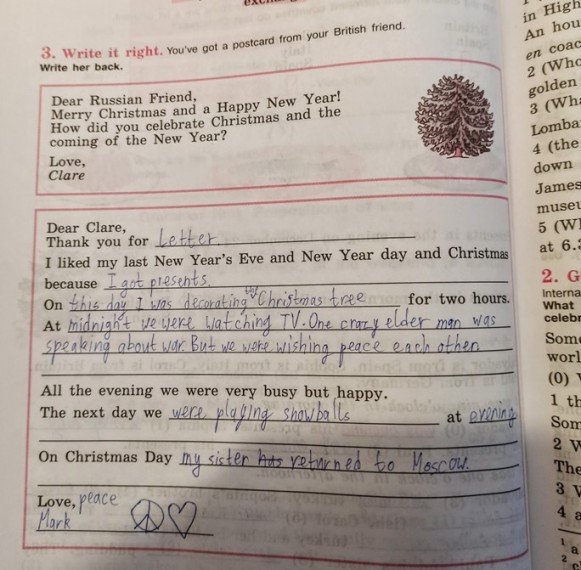 3. Write it right. You've got a postcard from your British friend.
Write her back.
Dear Russian Friend,
Merry Christmas and a Happy New Year!
How did you celebrate Christmas and the
coming of the New Year?
Love,
Clare
Dear Clare,
Thank you for Letter.
I liked my last New Year's Eve and New Year day and Christmas
because I got presents.
On this day I was decorating Christmas tree for two hours.
At midnight we were watching TV. One crazy elder man was
speaking about war. But we were wishing peace each other.
All the evening we were very busy but happy.
The next day we were playing snowballs at evening
On Christmas Day my sister has returned to Moscow.
Love, peace
Mark
in High
An hou
en coac
2 (Who
golden
3 (Wha
Lomba
4 (the
down
James
museu
5 (W
at 6.
2. G
Interna
What
celebr
Some
worl
(0)
1 th
Som
2 W
The
3 V
4 a
1 a
2 c